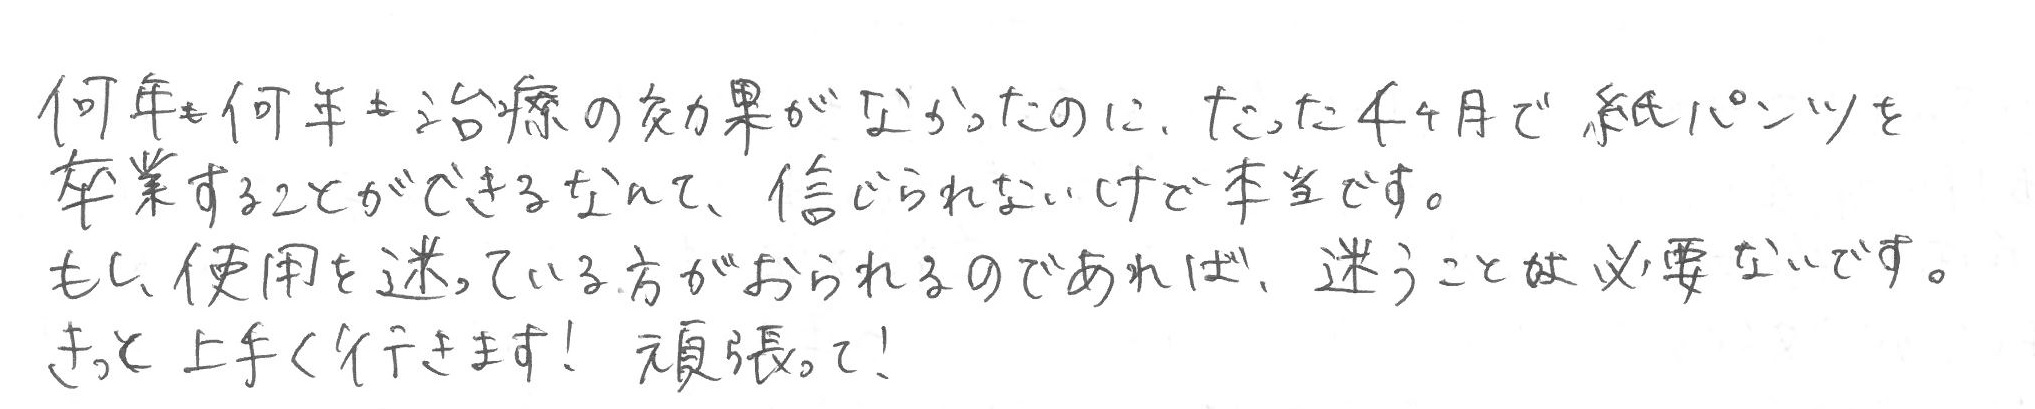 何年も何年も治療の効果がなかったのに、たった4ヶ月で紙パンツを
卒業することができるなんて、信じられないけど本当です。
もし、使用を迷っている方がおられるのであれば、迷うことは必要ないです。
きっと上手く行きます! 頑張って!